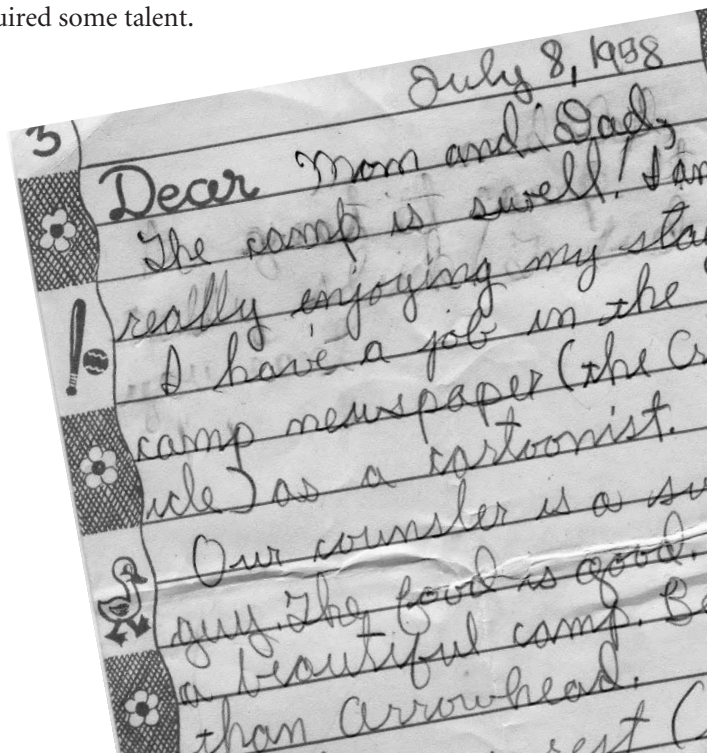 uired some talent.
July 8, 1958
3
Dear Mom and Dad,
The camp is swell! I am
really enjoying my sta
I have a job in the
camp newspaper (the Cr
icle) as a cartoonist.
Our counsler is a su
guy. The food is good.
a beautiful camp. Be
than Arrowhead.
rest (